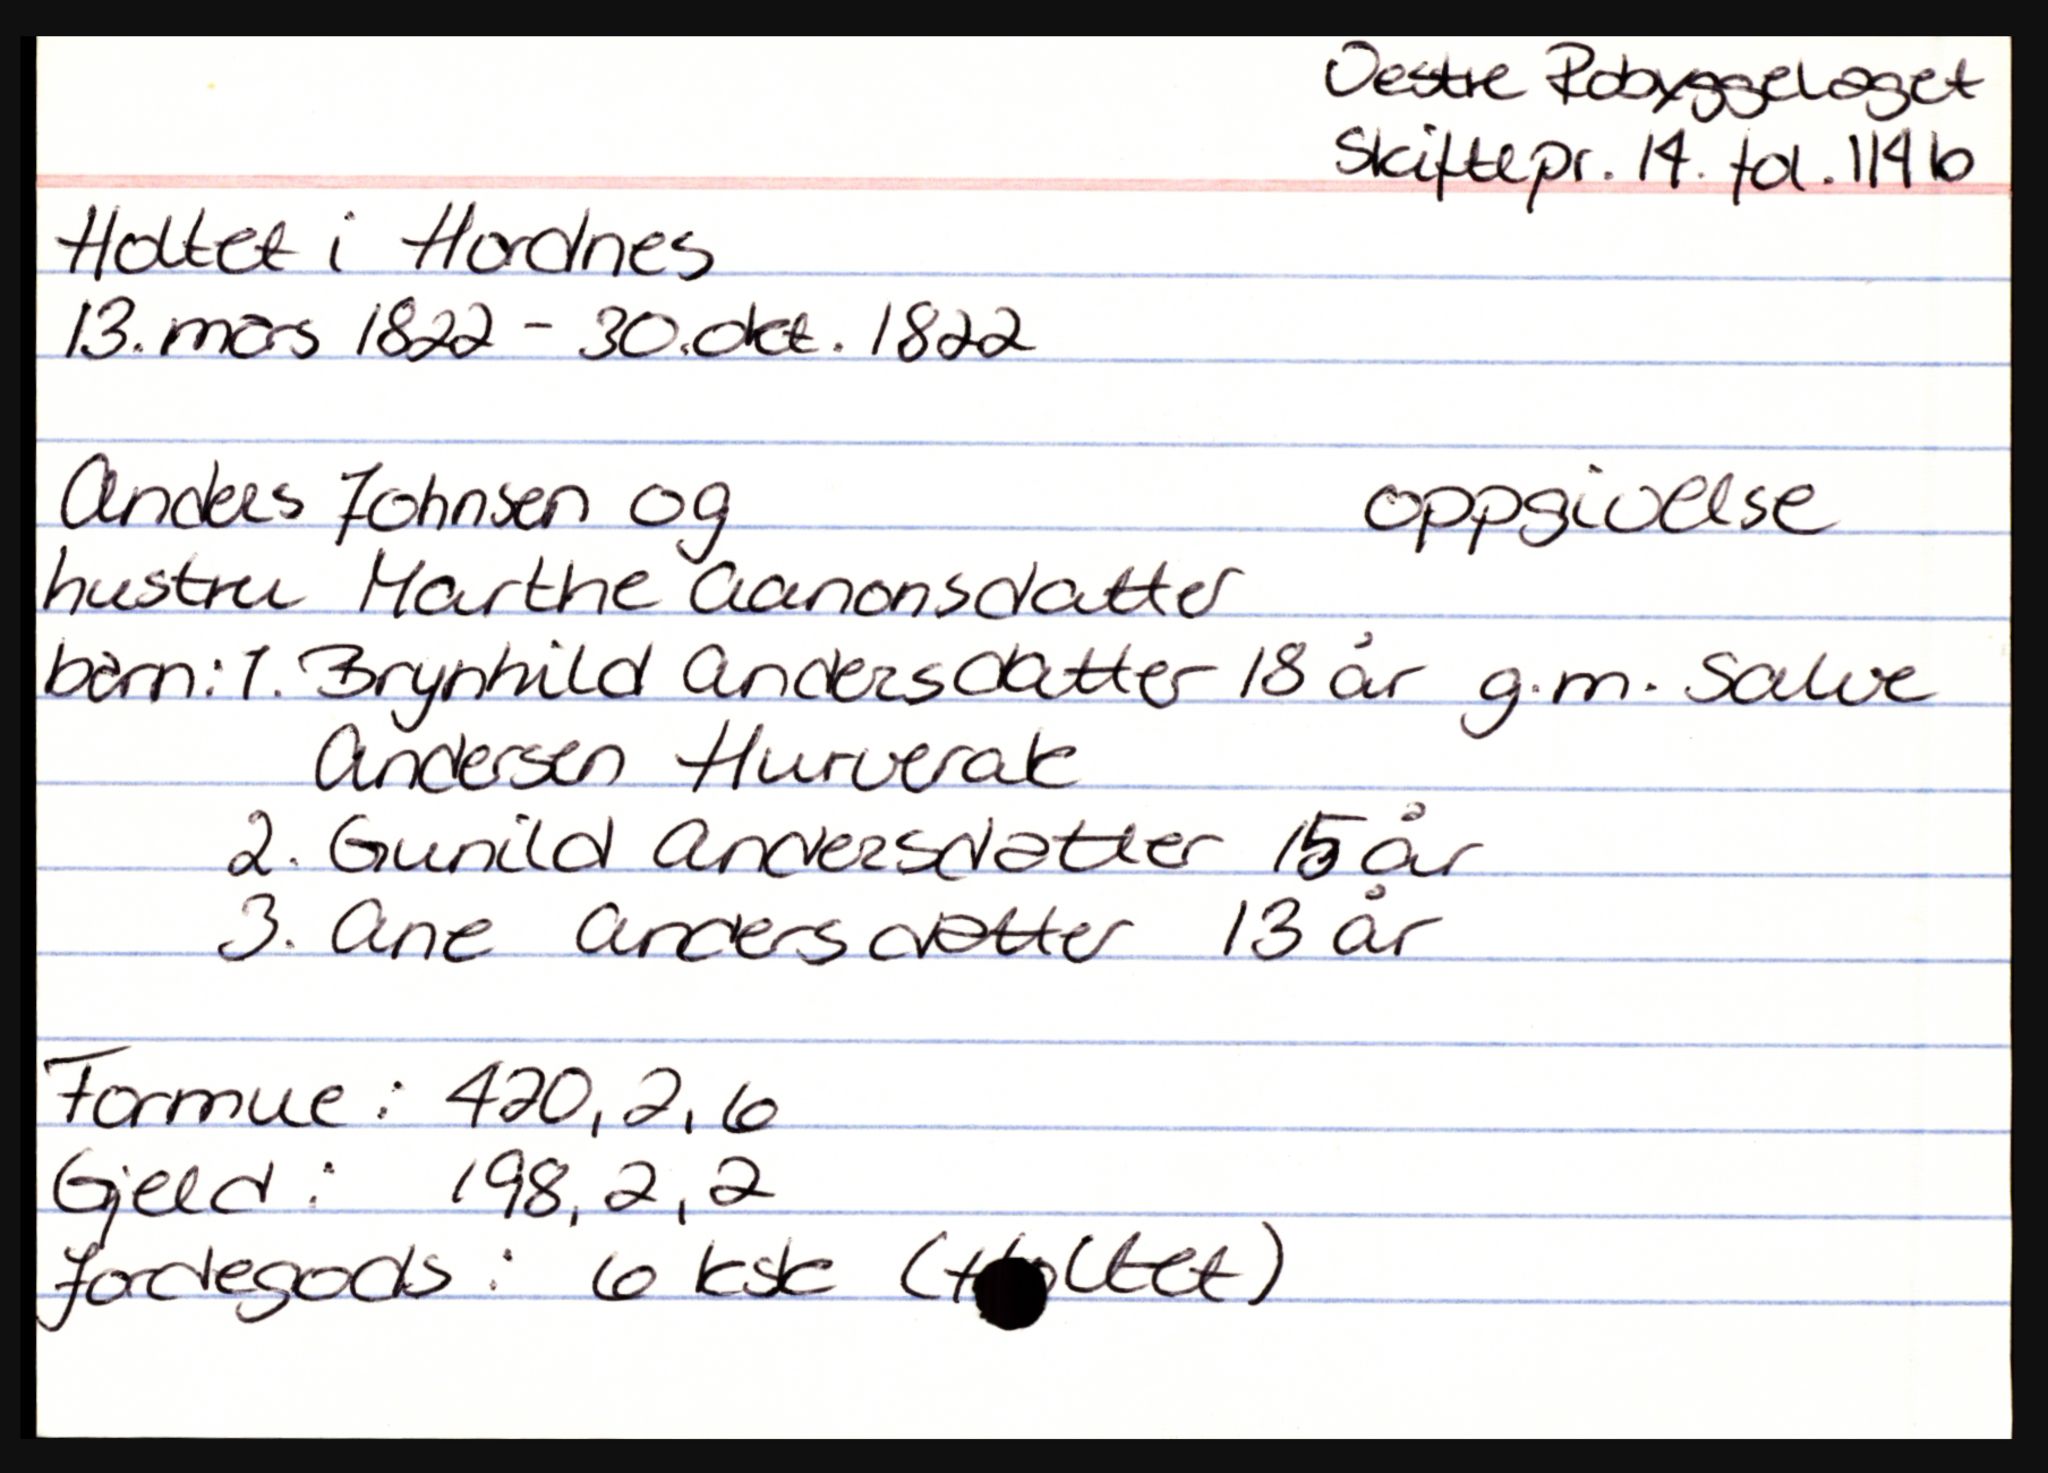 Vestre Robyggelaget
Skiftepr. 14. fol. 114 b
Holtet i Hordnes
13. mars 1822 - 30. okt. 1822
Anders Johnsen og oppgivelse
hustru Marthe Aanonsdatter
barn: 1. Brynhild Andersdatter 18 år g.m. Salve
Andersen Hurverak
2. Gunild Andersdatter 15 år
3. Ane Andersdatter 13 år
Formue: 420, 2, 6
Gjeld: 198, 2, 2
Jordegods: 6 ksk (Holtet)